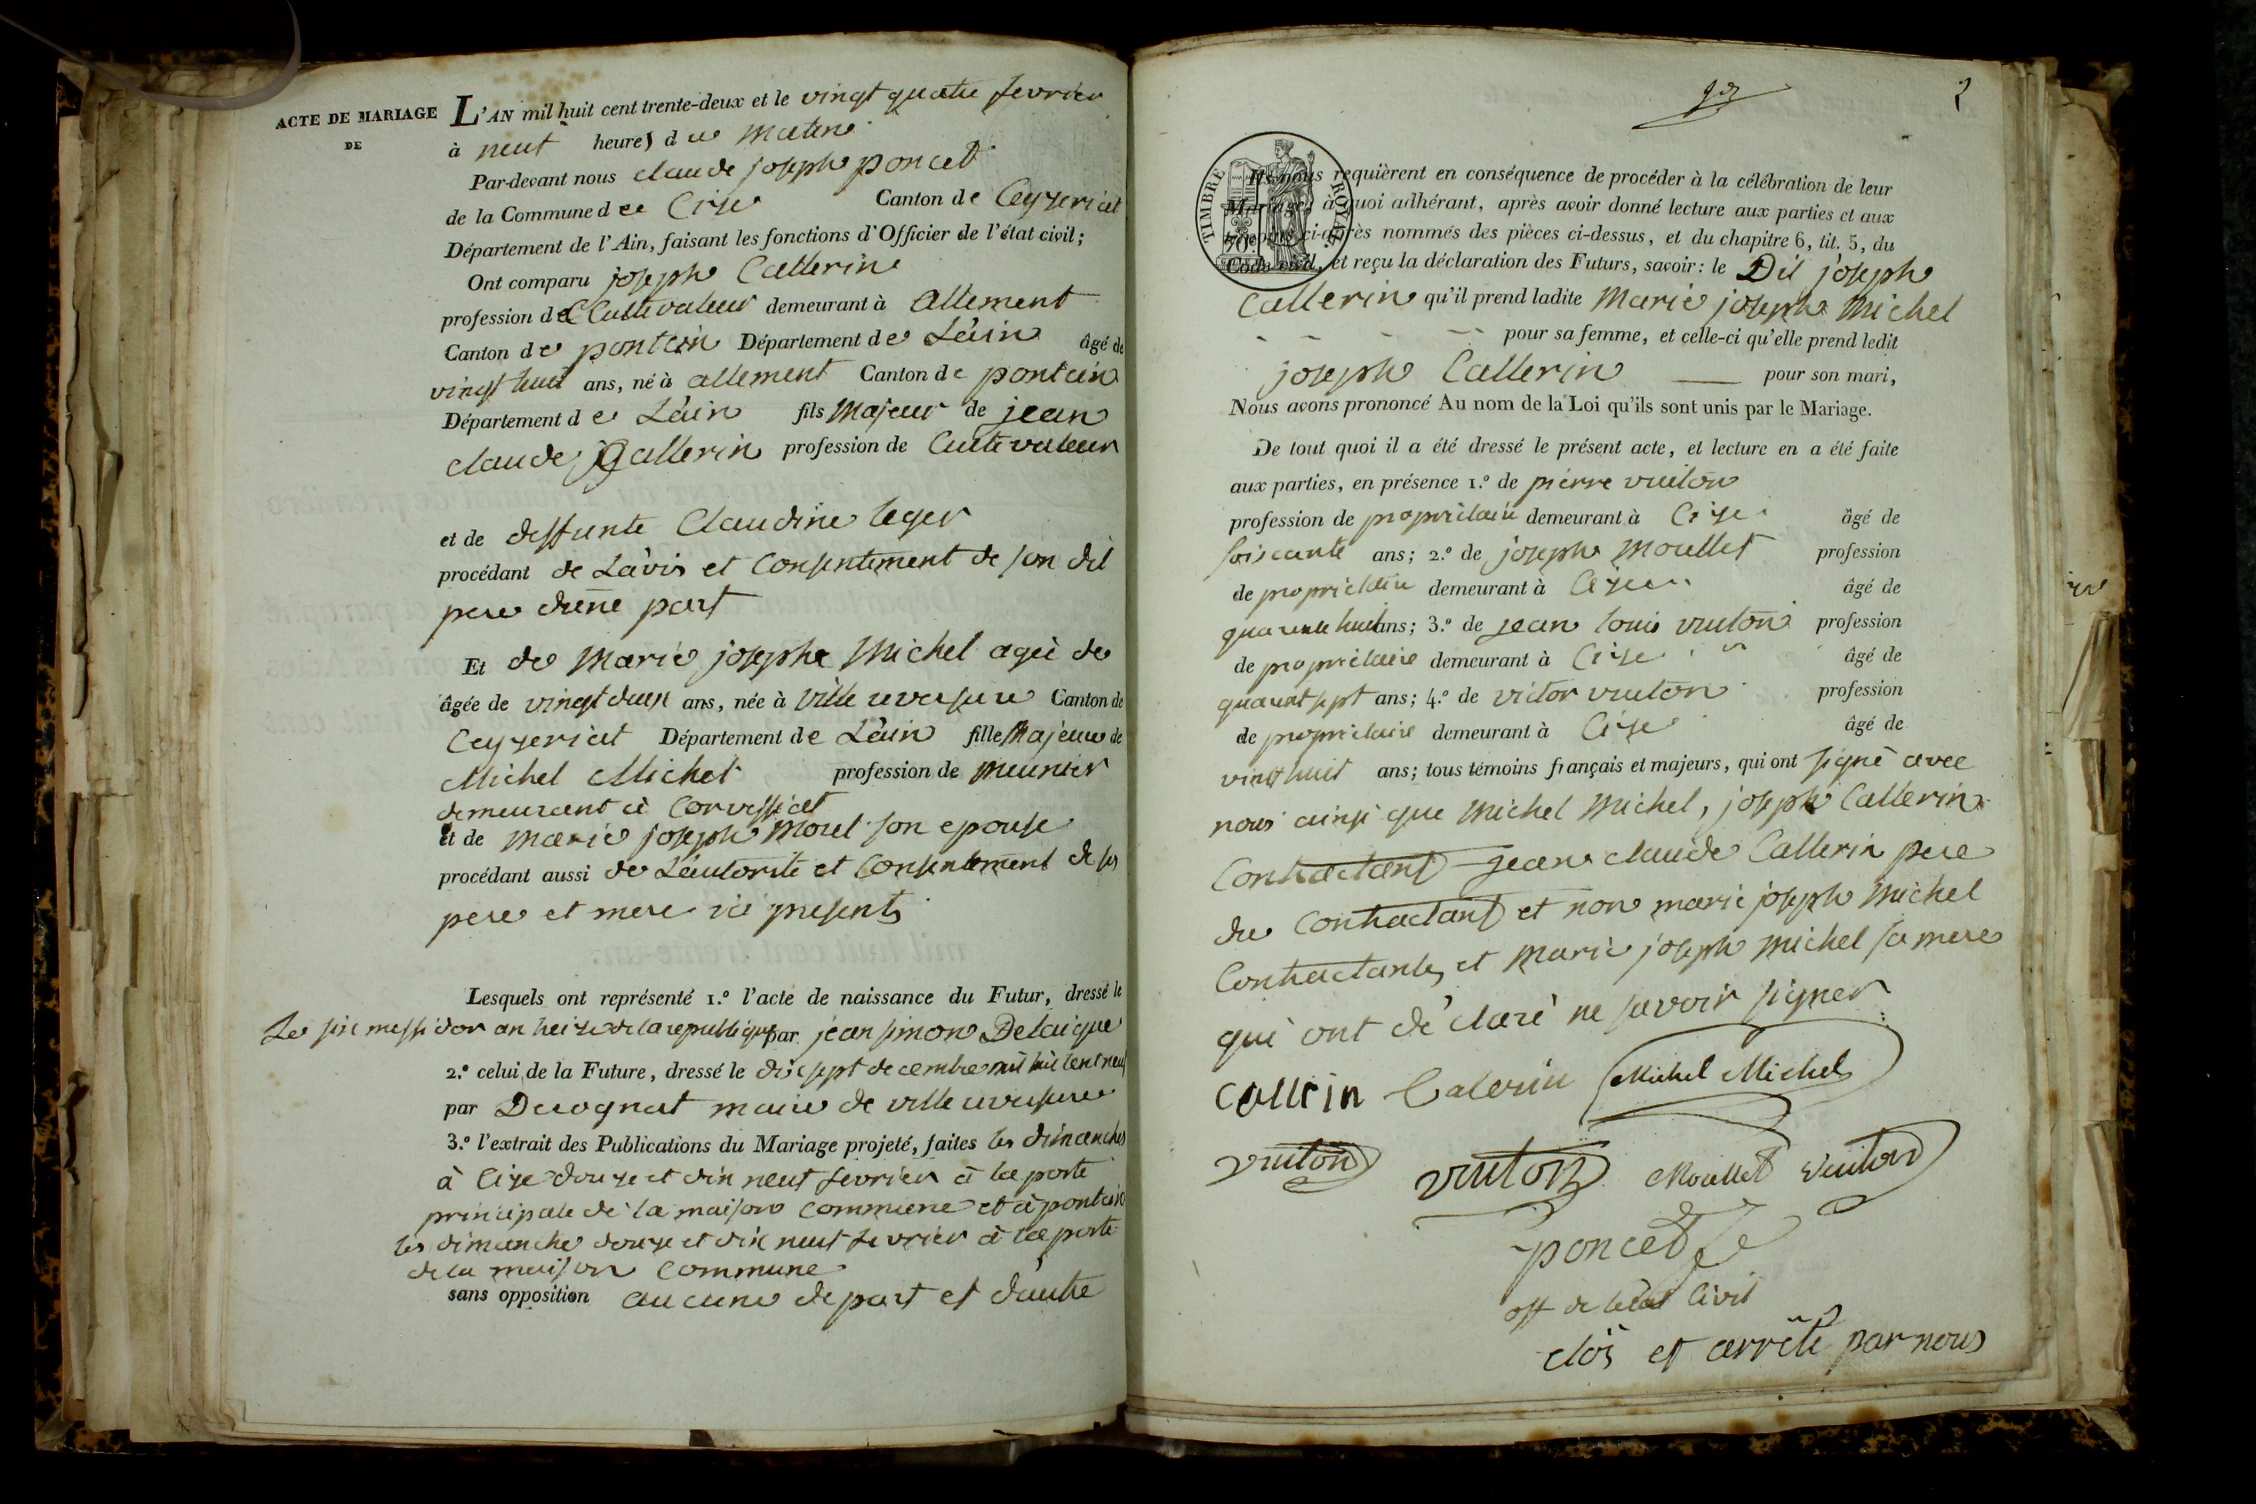 ACTE DE MARIAGE
DE
L'AN mil huit cent trente-deux et le vingt quatre fevrier
à neuf heures du matin
Par-devant nous claude joseph poncet
de la Commune de Cize Canton de Ceyzeriat
Département de l'Ain, faisant les fonctions d'Officier de l'état civil;
Ont comparu joseph Callerin
profession de Cultivateur demeurant à allement
Canton de pontcin Département de L'ain âgé de
vingt huit ans, né à allement Canton de pontcin
Département de L'ain fils Majeur de jean
claude Callerin profession de Cultivateur
et de deffunte Claudine leger
procédant de L'avis et Consentement de son dit
pere d'une part
Et de Marie josephe Michel agée de
âgée de vingt deux ans, née à ville reversure Canton de
Ceyzeriat Département de L'ain fille Majeure de
Michel Michel profession de meunier
demeurant à Corveissiat
et de marie joseph Morel son epouse
procédant aussi de L'autorité et Consentement de ses
pere et mere ici presents
Lesquels ont représenté 1.º l'acte de naissance du Futur, dressé le
Le six messidor an treize de la republique par jean simon Delaigue
2.º celui de la Future, dressé le dix sept decembre mil huit cent neuf
par Derognat maire de ville reversure
3.º l'extrait des Publications du Mariage projeté, faites les dimanches
à Cize douze et dix neuf fevrier à la porte
principale de la maison commune et à pontcin
les dimanche douze et dix neuf fevrier à la porte
de la maison commune
sans opposition aucune de part et d'autre
2
TIMBRE ROYAL
70
Ils nous requièrent en conséquence de procéder à la célébration de leur
Mariage; à quoi adhérant, après avoir donné lecture aux parties et aux
témoins ci-après nommés des pièces ci-dessus, et du chapitre 6, tit. 5, du
Code civil, et reçu la déclaration des Futurs, savoir: le Dit joseph
Callerin qu'il prend ladite Marie joseph Michel
pour sa femme, et celle-ci qu'elle prend ledit
joseph Callerin pour son mari,
Nous avons prononcé Au nom de la Loi qu'ils sont unis par le Mariage.
De tout quoi il a été dressé le présent acte, et lecture en a été faite
aux parties, en présence 1.º de pierre vuiton
profession de proprietaire demeurant à Cize âgé de
soixante ans; 2.º de joseph Moullet profession
de proprietaire demeurant à Cize âgé de
quarante huit ans; 3.º de jean louis vuiton profession
de proprietaire demeurant à Cize âgé de
quarant sept ans; 4.º de victor vuiton profession
de proprietaire demeurant à Cize âgé de
vingt huit ans; tous témoins français et majeurs, qui ont signé avec
nous ainsi que Michel Michel, joseph Callerin
Contractant jean claude Callerin pere
du Contractant et non marie joseph Michel
Contractante, et Marie joseph Michel sa mere
qui ont déclaré ne savoir signer
Callrin Calerin Michel Michel
vuiton vuiton Moullet vuiton
poncet
off de l'état Civil
clos et arrêté par nous